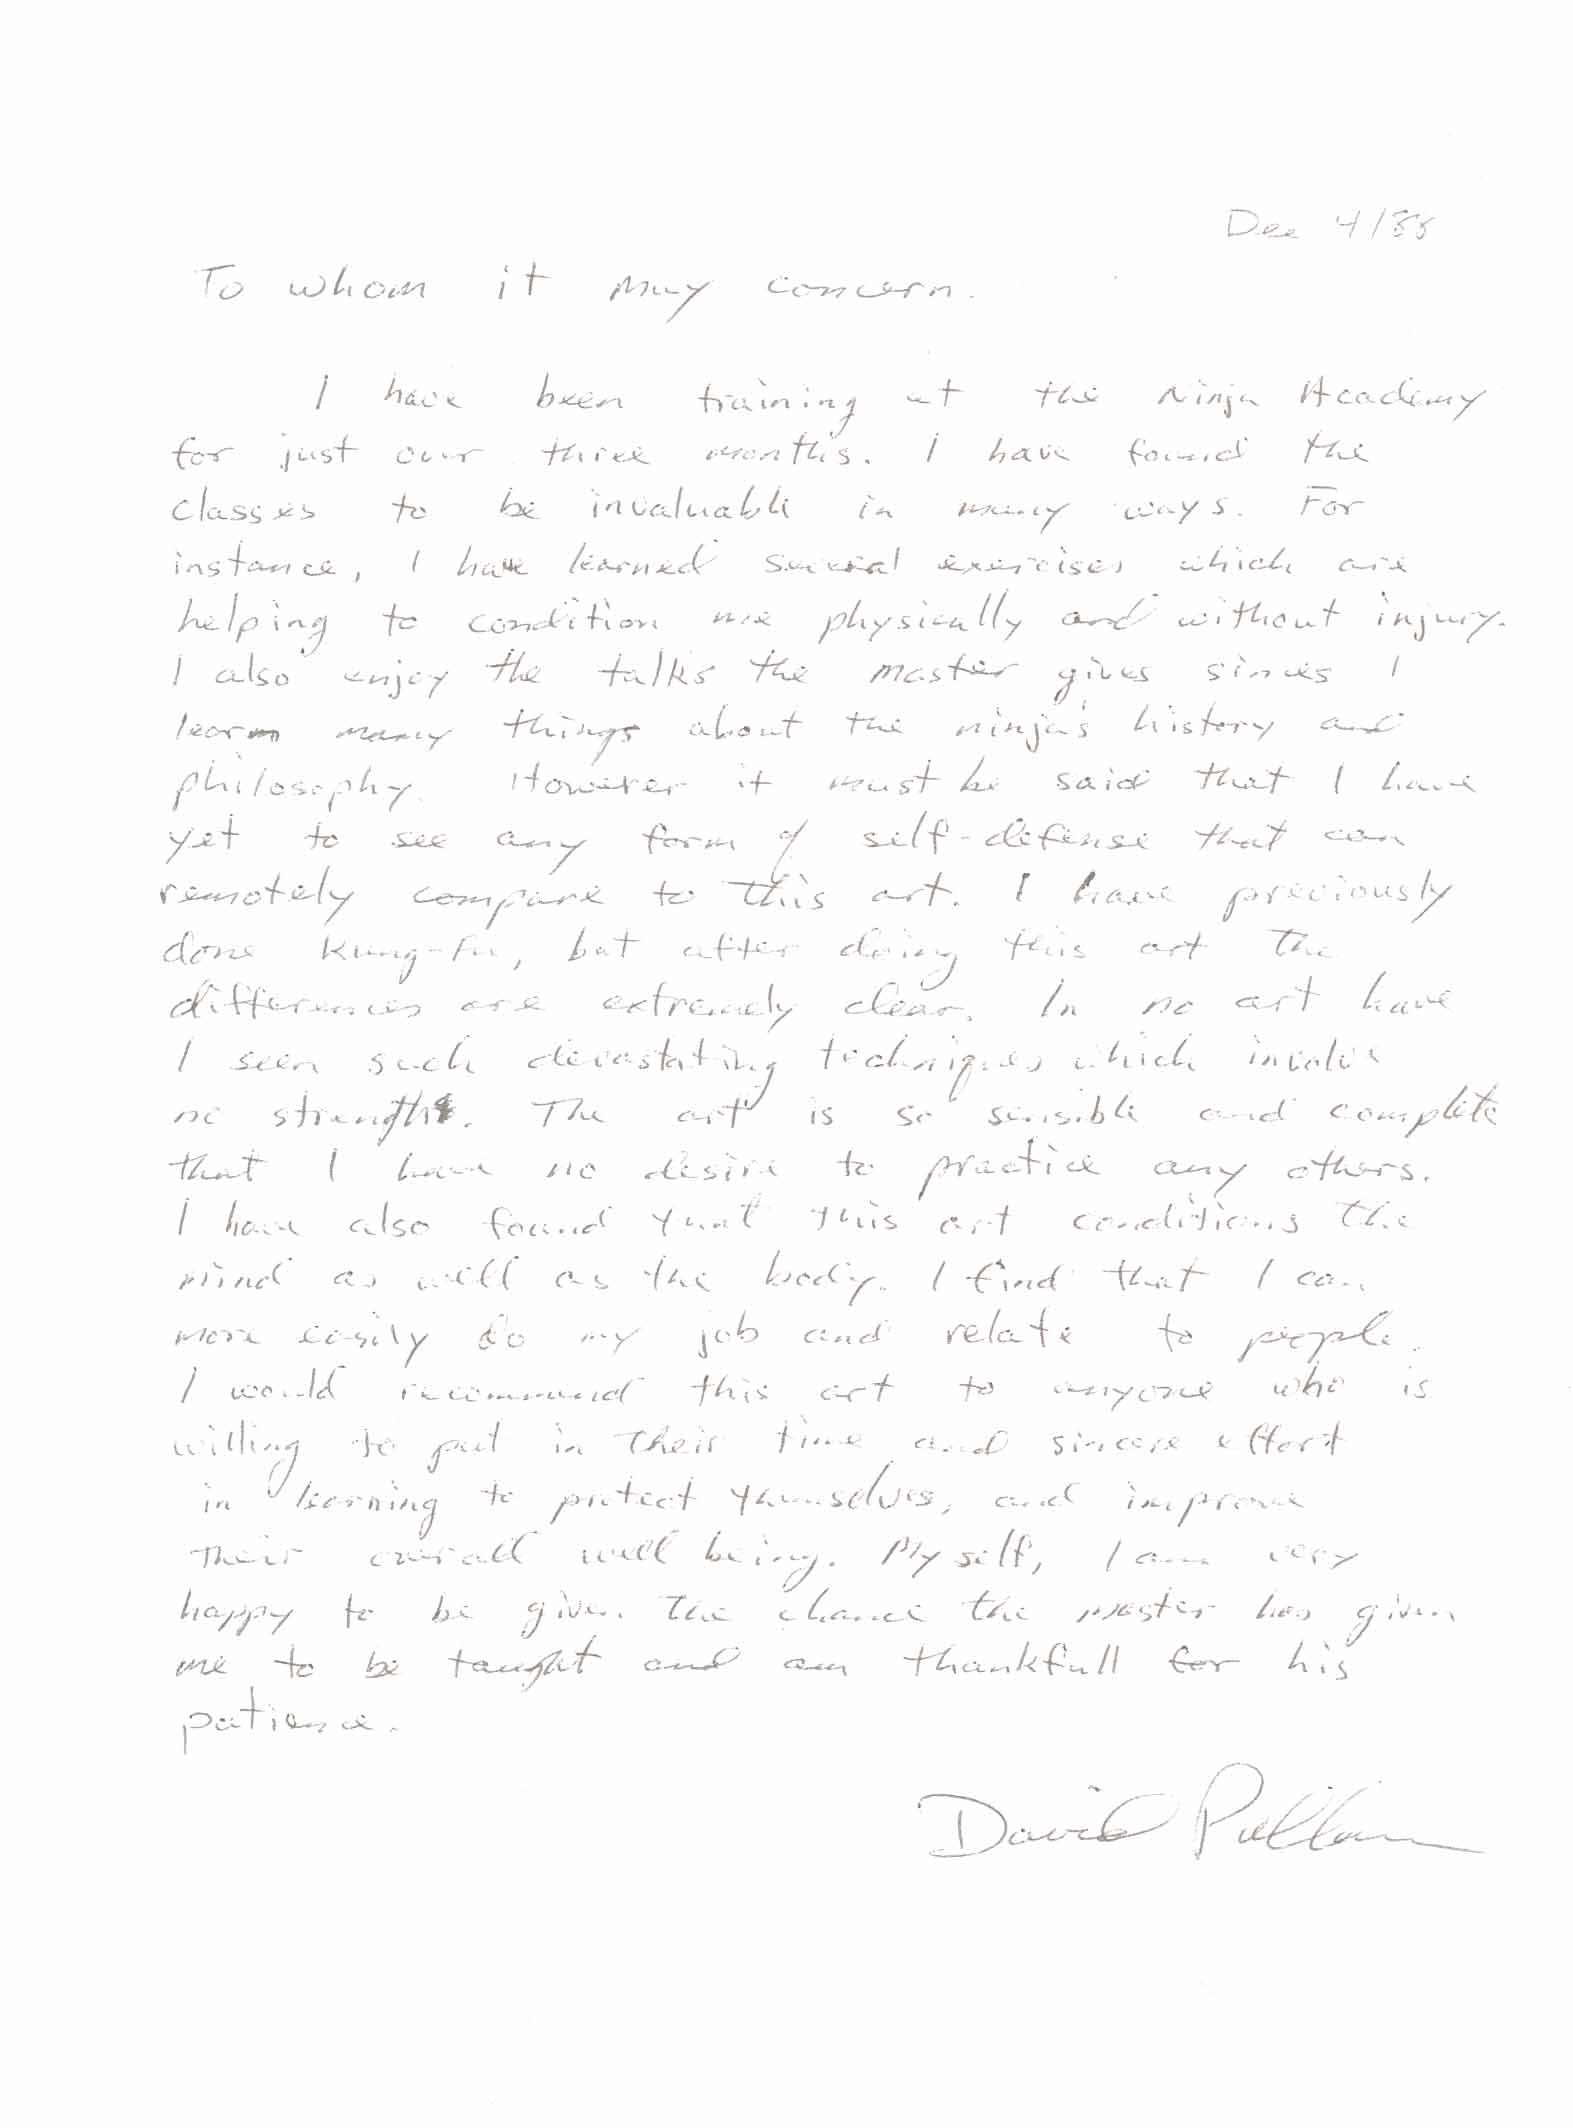 Dec 4/88
To whom it may concern.
I have been training at the Ninja Academy
for just over three months. I have found the
classes to be invaluable in many ways. For
instance, I have learned several exercises which are
helping to condition me physically and without injury.
I also enjoy the talks the master gives sinces I
learn many things about the ninja's history and
philosophy. However it must be said that I have
yet to see any form of self-defense that can
remotely compare to this art. I have previously
done Kung-Fu, but after doing this art the
differences are extremely clear. In no art have
I seen such devastating techniques which involve
no strength. The art is so sensible and complete
that I have no desire to practice any others.
I have also found that this art conditions the
mind as well as the body. I find that I can
more easily do my job and relate to people.
I would recommend this art to anyone who is
willing to put in their time and sincere effort
in learning to protect themselves, and improve
their overall well being. Myself, I am very
happy to be given the chance the master has given
me to be taught and am thankfull for his
patience.
David Pullam